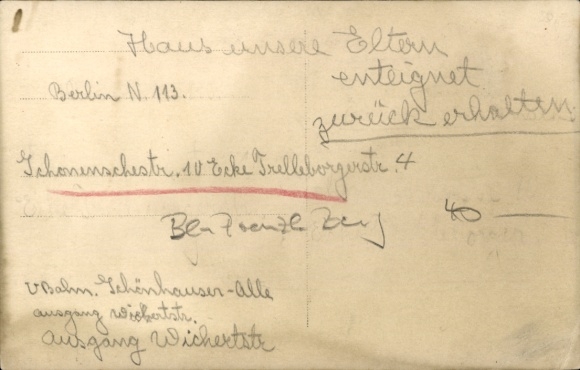 Haus unsere Eltern
enteignet
zurück erhalten.
Berlin N. 113.
Schonenschestr. 10 Ecke Trelleborgerstr. 4
Bln Prenzl. Berg
40
V Bahn. Schönhauser-Alle
ausgang wichertstr.
ausgang Wichertstr